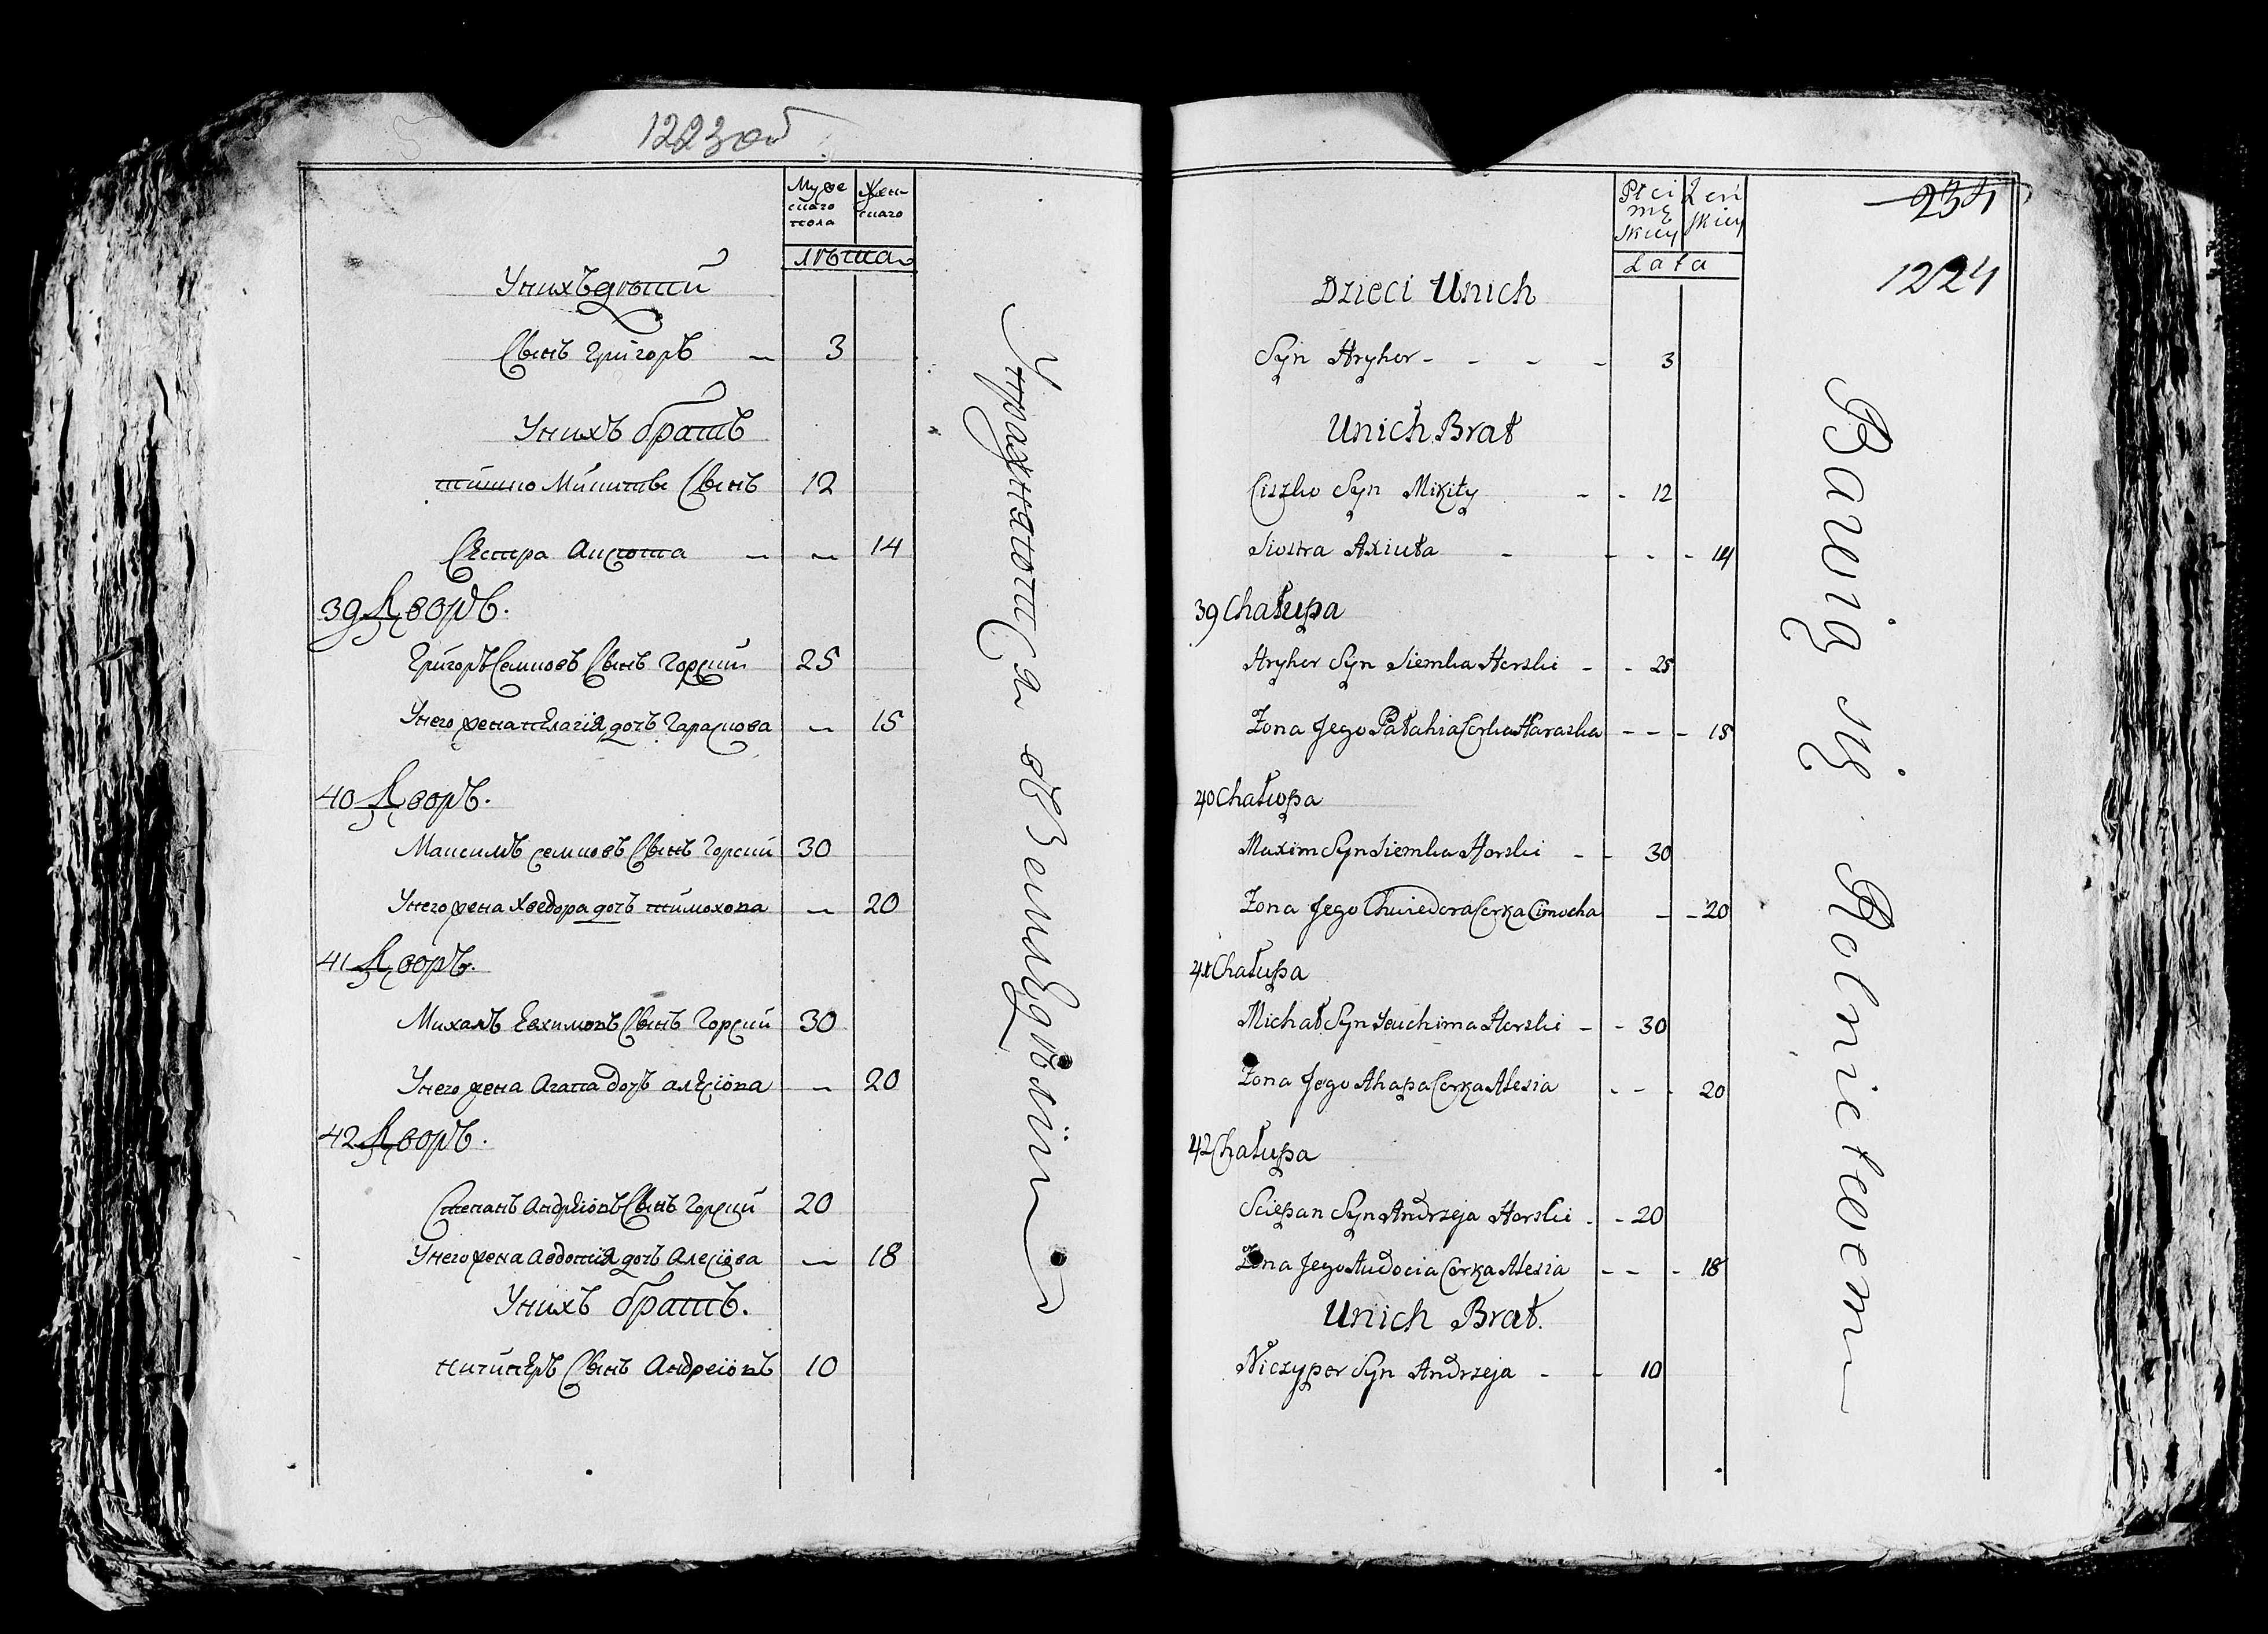 1223 об
Муже
скаго
пола
Жен
скаго
лѣта
У нихъ дѣти
Сынъ Григоръ — 3
У нихъ братъ
тишко Микиты Сынъ 12
Сестра Аксюта — — 14
39 Дворъ.
Григоръ Семковъ Сынъ Горский 25
У него жена пелагiя дочь Гараскова — 15
40 Дворъ.
Максимъ семковъ Сынъ Горский 30
У него жена Хведора дочь тимохова — 20
41 Дворъ.
Михалъ Евхимовъ Сынъ Горский 30
У него жена Агапа дочь алесiова — 20
42 Дворъ.
Степанъ Андреiовъ Сынъ Горский 20
У него жена Авдотiя дочь Алесiова — 18
У нихъ братъ.
ничипёръ Сынъ Андреiовъ 10
Упражняются въ Земледѣлiи
234
1224
Płci
mę
skiey
Żeń
skiey
Lata
Dzieci U nich
Syn Hryhor - - - - 3
U nich Brat
Ciszko Syn Mikity - - 12
Siostra Axiuta - - - - 14
39 Chałupa
Hryhor Syn Siemka Horski - - 25
Żona Jego Pałahia Corka Haraska - - - 15
40 Chałupa
Maxim Syn Siemka Horski - - 30
Żona Jego Chwiedora Corka Cimocha - - 20
41 Chałupa
Michał Syn Jeuchima Horski - - 30
Żona Jego Ahapa Corka Alesia - - - 20
42 Chałupa
Sciepan Syn Andrzeja Horski - - 20
Żona Jego Audocia Corka Alesia - - - 18
U nich Brat.
Niczyper Syn Andrzeja - - 10
Bawią się Rolnictwem